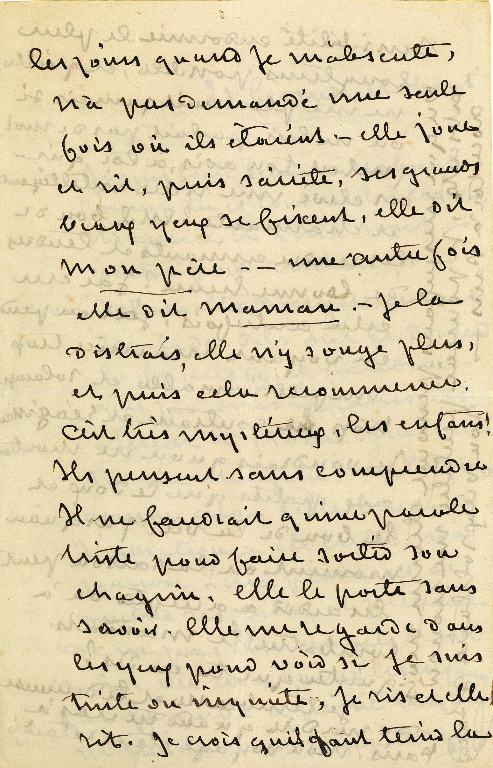 les jours quand je m'absente,
n'a pas demandé une seule
fois où ils étaient – elle joue
et rit, puis s'arrête, ses grands
beaux yeux se fixent, elle dit
mon père –– une autre fois
elle dit maman. – je la
distrais, elle n'y songe plus,
et puis cela recommence.
C'est très mystérieux, les enfans!
Ils pensent sans comprendre
Il ne faudrait qu'une parole
triste pour faire sortir son
chagrin. elle le porte sans
savoir. Elle me regarde dans
les yeux pour voir si je suis
triste ou inquiète, je ris et elle
rit. je crois qu'il faut tenir la